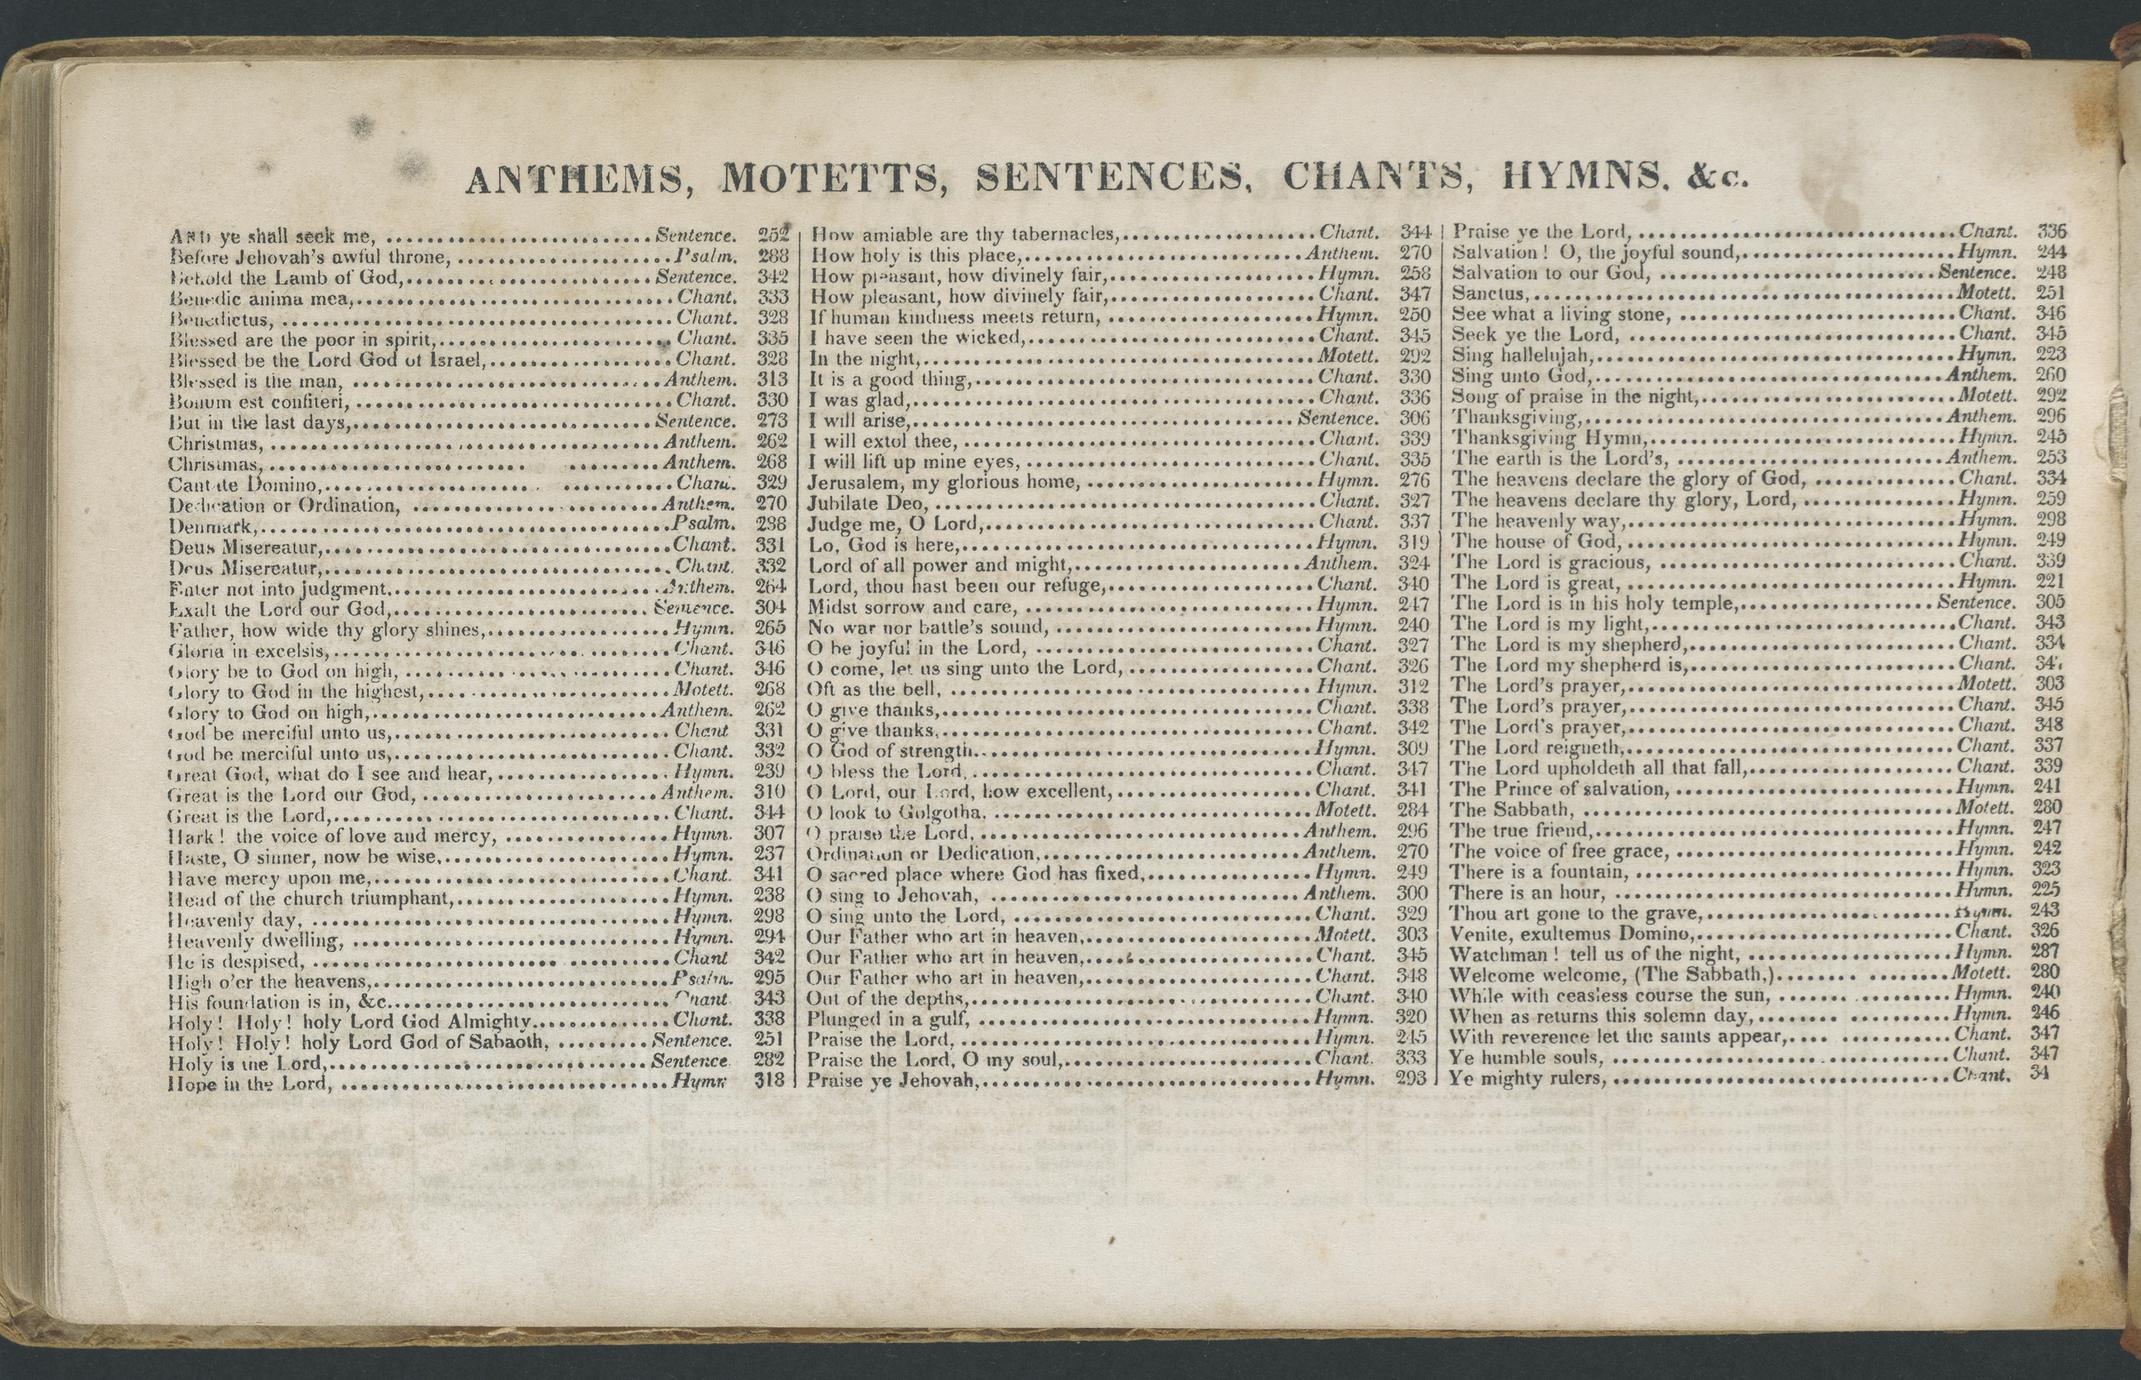 ANTHEMS, MOTETTS, SENTENCES, CHANTS, HYMNS, &c.
AND ye shall seek me, Sentence. 252
Before Jehovah's awful throne, Psalm. 288
Behold the Lamb of God, Sentence. 342
Benedic anima mea, Chant. 333
Benedictus, Chant. 328
Blessed are the poor in spirit, Chant. 335
Blessed be the Lord God of Israel, Chant. 328
Blessed is the man, Anthem. 313
Bonum est confiteri, Chant. 330
But in the last days, Sentence. 273
Christmas, Anthem. 262
Christmas, Anthem. 268
Cantate Domino, Chant. 329
Dedication or Ordination, Anthem. 270
Denmark, Psalm. 288
Deus Misereatur, Chant. 331
Deus Misereatur, Chant. 332
Enter not into judgment. Anthem. 264
Exalt the Lord our God, Sentence. 304
Father, how wide thy glory shines, Hymn. 265
Gloria in excelsis, Chant. 346
Glory be to God on high, Chant. 346
Glory to God in the highest, Motett. 268
Glory to God on high, Anthem. 262
God be merciful unto us, Chant 331
God be merciful unto us, Chant. 332
Great God, what do I see and hear, Hymn. 239
Great is the Lord our God, Anthem. 310
Great is the Lord, Chant. 344
Hark! the voice of love and mercy, Hymn. 307
Haste, O sinner, now be wise, Hymn. 237
Have mercy upon me, Chant. 341
Head of the church triumphant, Hymn. 238
Heavenly day, Hymn. 298
Heavenly dwelling, Hymn. 294
He is despised, Chant 342
High o'er the heavens, Psalm. 295
His foundation is in, &c. Chant 343
Holy! Holy! holy Lord God Almighty. Chant. 338
Holy! Holy! holy Lord God of Sabaoth, Sentence. 251
Holy is the Lord, Sentence 282
Hope in the Lord, Hymn 318
How amiable are thy tabernacles, Chant. 344
How holy is this place, Anthem. 270
How pleasant, how divinely fair, Hymn. 258
How pleasant, how divinely fair, Chant. 347
If human kindness meets return, Hymn. 250
I have seen the wicked, Chant. 345
In the night, Motett. 292
It is a good thing, Chant. 330
I was glad, Chant. 336
I will arise, Sentence. 306
I will extol thee, Chant. 339
I will lift up mine eyes, Chant. 335
Jerusalem, my glorious home, Hymn. 276
Jubilate Deo, Chant. 327
Judge me, O Lord, Chant. 337
Lo, God is here, Hymn. 319
Lord of all power and might, Anthem. 324
Lord, thou hast been our refuge, Chant. 340
Midst sorrow and care, Hymn. 247
No war nor battle's sound, Hymn. 240
O be joyful in the Lord, Chant. 327
O come, let us sing unto the Lord, Chant. 326
Oft as the bell, Hymn. 312
O give thanks, Chant. 338
O give thanks, Chant. 342
O God of strength. Hymn. 309
O bless the Lord, Chant. 347
O Lord, our Lord, how excellent, Chant. 341
O look to Golgotha. Motett. 284
O praise the Lord, Anthem. 296
Ordination or Dedication, Anthem. 270
O sacred place where God has fixed, Hymn. 249
O sing to Jehovah, Anthem. 300
O sing unto the Lord, Chant. 329
Our Father who art in heaven, Motett. 303
Our Father who art in heaven, Chant. 345
Our Father who art in heaven, Chant. 348
Out of the depths, Chant. 340
Plunged in a gulf, Hymn. 320
Praise the Lord, Hymn. 245
Praise the Lord, O my soul, Chant. 333
Praise ye Jehovah, Hymn. 293
Praise ye the Lord, Chant. 336
Salvation! O, the joyful sound, Hymn. 244
Salvation to our God, Sentence. 248
Sanctus, Motett. 251
See what a living stone, Chant. 346
Seek ye the Lord, Chant. 345
Sing hallelujah, Hymn. 223
Sing unto God, Anthem. 260
Song of praise in the night, Motett. 292
Thanksgiving, Anthem. 296
Thanksgiving Hymn, Hymn. 245
The earth is the Lord's, Anthem. 253
The heavens declare the glory of God, Chant. 334
The heavens declare thy glory, Lord, Hymn. 259
The heavenly way, Hymn. 298
The house of God, Hymn. 249
The Lord is gracious, Chant. 339
The Lord is great, Hymn. 221
The Lord is in his holy temple, Sentence. 305
The Lord is my light, Chant. 343
The Lord is my shepherd, Chant. 334
The Lord my shepherd is, Chant.
The Lord's prayer, Motett. 303
The Lord's prayer, Chant. 345
The Lord's prayer, Chant. 348
The Lord reigneth, Chant. 337
The Lord upholdeth all that fall, Chant. 339
The Prince of salvation, Hymn. 241
The Sabbath, Motett. 280
The true friend, Hymn. 247
The voice of free grace, Hymn. 242
There is a fountain, Hymn. 323
There is an hour, Hymn. 225
Thou art gone to the grave, Hymn. 243
Venite, exultemus Domino, Chant. 326
Watchman! tell us of the night, Hymn. 287
Welcome welcome, (The Sabbath,) Motett. 280
While with ceasless course the sun, Hymn. 240
When as returns this solemn day, Hymn. 246
With reverence let the saints appear, Chant. 347
Ye humble souls, Chant. 347
Ye mighty rulers, Chant.